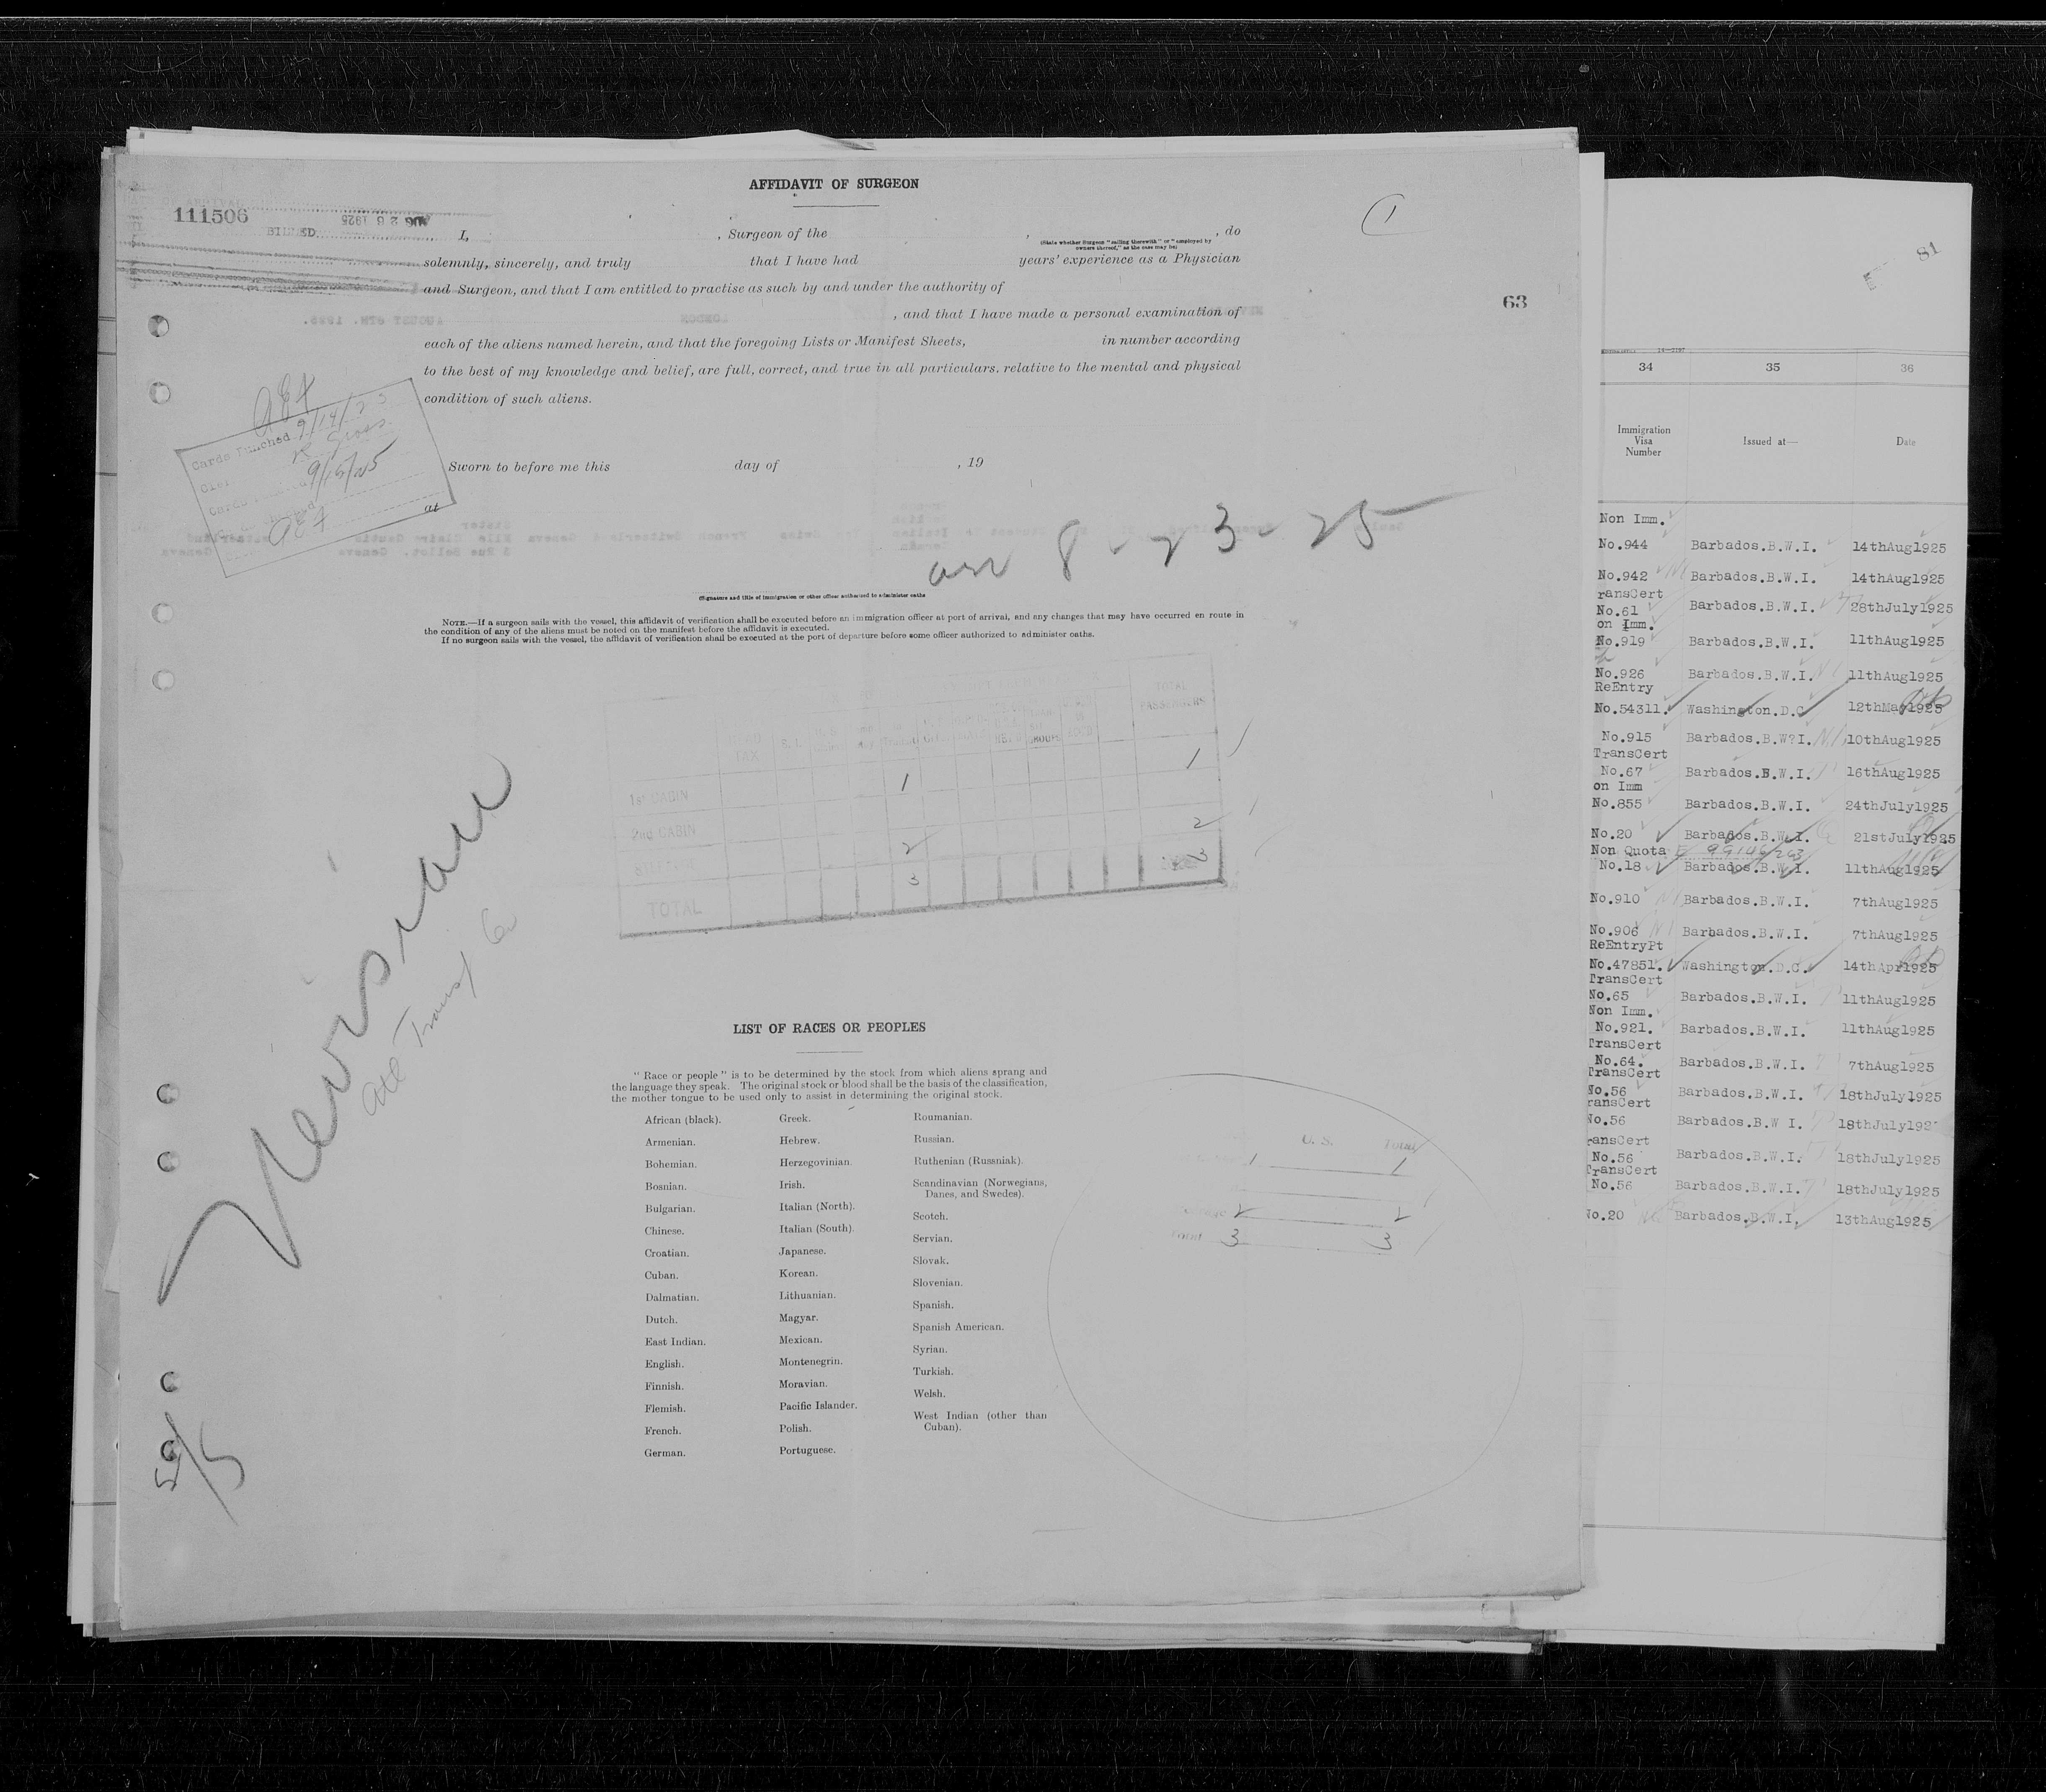 AFFIDAVIT OF SURGEON
111506
BILLED
AUG 26 1925
1
I, , Surgeon of the , , do
(State whether Surgeon "sailing therewith" or "employed by
owners thereof," as the case may be)
solemnly, sincerely, and truly that I have had years' experience as a Physician
and Surgeon, and that I am entitled to practise as such by and under the authority of
63
, and that I have made a personal examination of
each of the aliens named herein, and that the foregoing Lists or Manifest Sheets, in number according
to the best of my knowledge and belief, are full, correct, and true in all particulars, relative to the mental and physical
condition of such aliens.
Cards Punched 9/14/25
9/15/25
Sworn to before me this day of , 19
at
arr 8-23-25
(Signature and title of immigration or other officer authorized to administer oaths
NOTE.—If a surgeon sails with the vessel, this affidavit of verification shall be executed before an immigration officer at port of arrival, and any changes that may have occurred en route in
the condition of any of the aliens must be noted on the manifest before the affidavit is executed.
If no surgeon sails with the vessel, the affidavit of verification shall be executed at the port of departure before some officer authorized to administer oaths.
TOTAL
PASSENGERS
HEAD
TAX
1st CABIN 1 1
2nd CABIN
2 2
TOTAL 3 3
Nevisian
Atl Transf Co
5/5
LIST OF RACES OR PEOPLES
"Race or people" is to be determined by the stock from which aliens sprang and
the language they speak. The original stock or blood shall be the basis of the classification,
the mother tongue to be used only to assist in determining the original stock.
African (black).
Armenian.
Bohemian.
Bosnian.
Bulgarian.
Chinese.
Croatian.
Cuban.
Dalmatian.
Dutch.
East Indian.
English.
Finnish.
Flemish.
French.
German.
Greek.
Hebrew.
Herzegovinian.
Irish.
Italian (North).
Italian (South).
Japanese.
Korean.
Lithuanian.
Magyar.
Mexican.
Montenegrin.
Moravian.
Pacific Islander.
Polish.
Portuguese.
Roumanian.
Russian.
Ruthenian (Russniak).
Scandinavian (Norwegians,
Danes, and Swedes).
Scotch.
Servian.
Slovak.
Slovenian.
Spanish.
Spanish American.
Syrian.
Turkish.
Welsh.
West Indian (other than
Cuban).
U. S. Total
1 1
2 2
Total 3 3
81
34 35 36
Immigration
Visa
Number
Issued at—
Date
Non Imm.
No.944 Barbados.B.W.I. 14thAug1925
No.942 Barbados.B.W.I. 14thAug1925
ransCert
No.61 Barbados.B.W.I. 28thJuly1925
on Imm.
No.919 Barbados.B.W.I. 11thAug1925
No.926 Barbados.B.W.I. 11thAug1925
ReEntry
No.54311. Washington.D.C 12thMay1925
No.915 Barbados.B.W?I. 10thAug1925
TransCert
No.67 Barbados.B.W.I. 16thAug1925
on Imm
No.855 Barbados.B.W.I. 24thJuly1925
No.20 Barbados.B.W.I. 21stJuly1925
Non Quota
No.18 Barbados.B.W.I. 11thAug1925
No.910 Barbados.B.W.I. 7thAug1925
No.906 Barbados.B.W.I. 7thAug1925
ReEntryPt
No.47851. Washington.D.C. 14thApr1925
TransCert
No.65 Barbados.B.W.I. 11thAug1925
Non Imm.
No.921. Barbados.B.W.I. 11thAug1925
TransCert
No.64. Barbados.B.W.I. 7thAug1925
TransCert
No.56 Barbados.B.W.I. 18thJuly1925
ransCert
No.56 Barbados.B.W I. 18thJuly192
ransCert
No.56 Barbados.B.W.I. 18thJuly1925
TransCert
No.56 Barbados.B.W.I. 18thJuly1925
No.20 Barbados.B.W.I. 13thAug1925